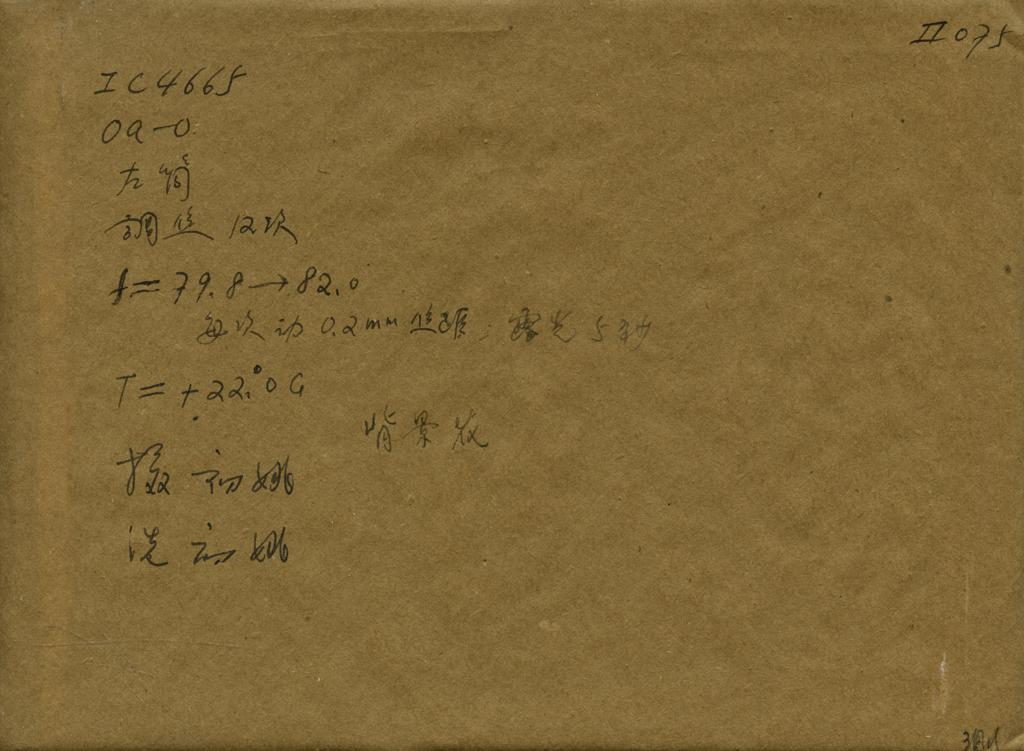 II 075
IC4665
Oa-O
左筒
調焦 12次
f=79.8→82.0
每次动 0.2mm 焦距, 露光 5秒
T=+22.°0 C
背景灰
摄 初 姚
洗 初 姚